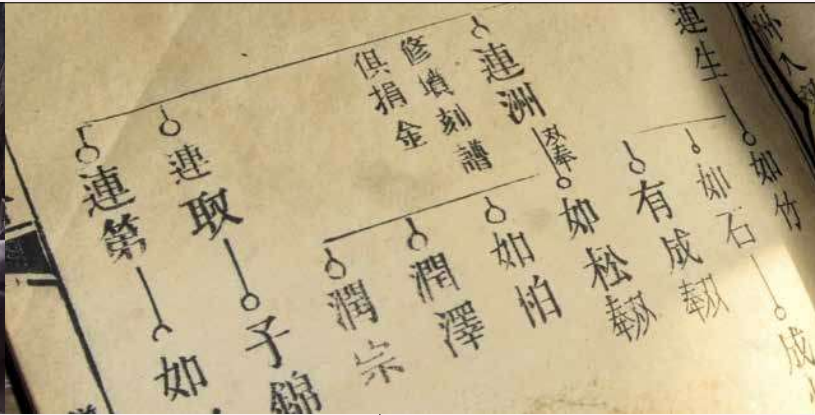 連生
如竹
如石
有成
連洲
修墳刻譜
俱捐金
如松
如怕
潤澤
潤宗
連取
子錦
連第
如